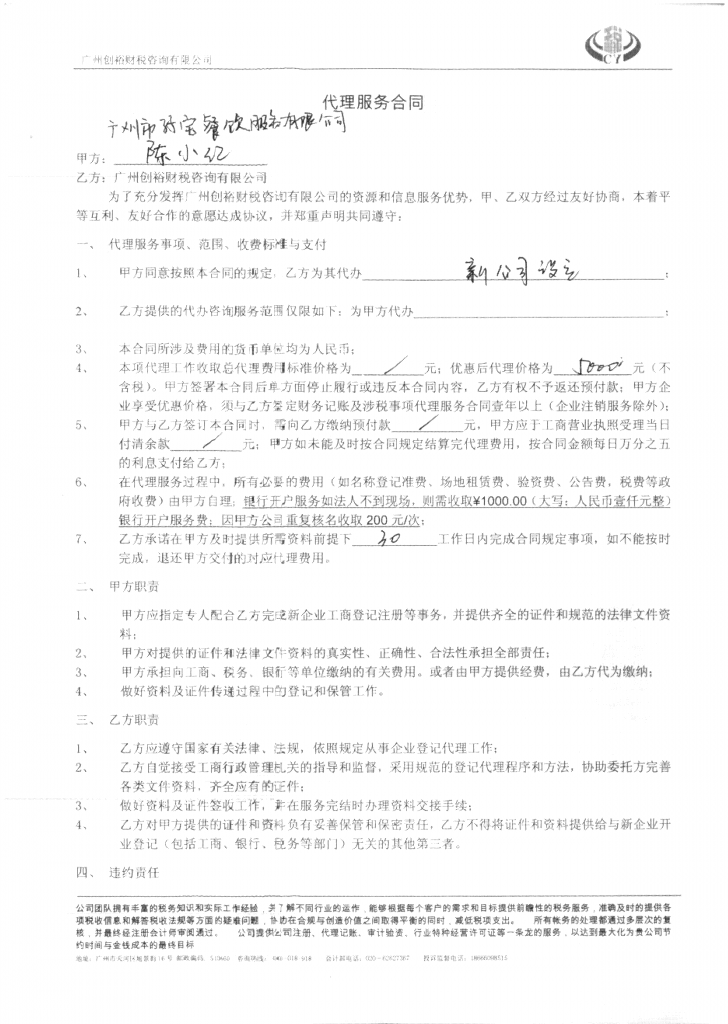 广州创裕财税咨询有限公司
CY
代理服务合同
广州市 宝餐饮服务有限公司
甲方：陈小红
乙方：广州创裕财税咨询有限公司
为了充分发挥广州创裕财税咨询有限公司的资源和信息服务优势，甲、乙双方经过友好协商，本着平
等互利、友好合作的意愿达成协议，并郑重声明共同遵守：
一、 代理服务事项、范围、收费标准与支付
1、 甲方同意按照本合同的规定，乙方为其代办 新公司设立 ；
2、 乙方提供的代办咨询服务范围仅限如下：为甲方代办 ；
3、 本合同所涉及费用的货币单位均为人民币；
4、 本项代理工作收取总代理费用标准价格为 / 元；优惠后代理价格为 5000 元（不
含税）。甲方签署本合同后单方面停止履行或违反本合同内容，乙方有权不予返还预付款；甲方企
业享受优惠价格，须与乙方签定财务记账及涉税事项代理服务合同壹年以上（企业注销服务除外）；
5、 甲方与乙方签订本合同时，需向乙方缴纳预付款 / 元，甲方应于工商营业执照受理当日
付清余款 / 元；甲方如未能及时按合同规定结算完代理费用，按合同金额每日万分之五
的利息支付给乙方；
6、 在代理服务过程中，所有必要的费用（如名称登记准费、场地租赁费、验资费、公告费，税费等政
府收费）由甲方自理；银行开户服务如法人不到现场，则需收取¥1000.00（大写：人民币壹仟元整）
银行开户服务费；因甲方公司重复核名收取 200 元/次；
7、 乙方承诺在甲方及时提供所需资料前提下 30 工作日内完成合同规定事项，如不能按时
完成，退还甲方交付的对应代理费用。
二、 甲方职责
1、 甲方应指定专人配合乙方完成新企业工商登记注册等事务，并提供齐全的证件和规范的法律文件资
料；
2、 甲方对提供的证件和法律文件资料的真实性、正确性、合法性承担全部责任；
3、 甲方承担向工商、税务、银行等单位缴纳的有关费用。或者由甲方提供经费，由乙方代为缴纳；
4、 做好资料及证件传递过程中的登记和保管工作。
三、 乙方职责
1、 乙方应遵守国家有关法律、法规，依照规定从事企业登记代理工作；
2、 乙方自觉接受工商行政管理机关的指导和监督，采用规范的登记代理程序和方法，协助委托方完善
各类文件资料，齐全应有的证件；
3、 做好资料及证件签收工作，并在服务完结时办理资料交接手续；
4、 乙方对甲方提供的证件和资料负有妥善保管和保密责任，乙方不得将证件和资料提供给与新企业开
业登记（包括工商、银行、税务等部门）无关的其他第三者。
四、 违约责任
公司团队拥有丰富的税务知识和实际工作经验，并了解不同行业的运作，能够根据每个客户的需求和目标提供前瞻性的税务服务，准确及时的提供各
项税收信息和解答税收法规等方面的疑难问题，协助在合规与创造价值之间取得平衡的同时，减低税项支出。 所有帐务的处理都通过多层次的复
核，并最终经注册会计师审阅通过。 公司提供公司注册、代理记账、审计验资、行业特种经营许可证等一条龙的服务，以达到最大化为贵公司节
约时间与金钱成本的最终目标
地址：广州市天河区 16 号 邮政编码 咨询热线： 会计部电话：020-62827367 投诉监督电话：